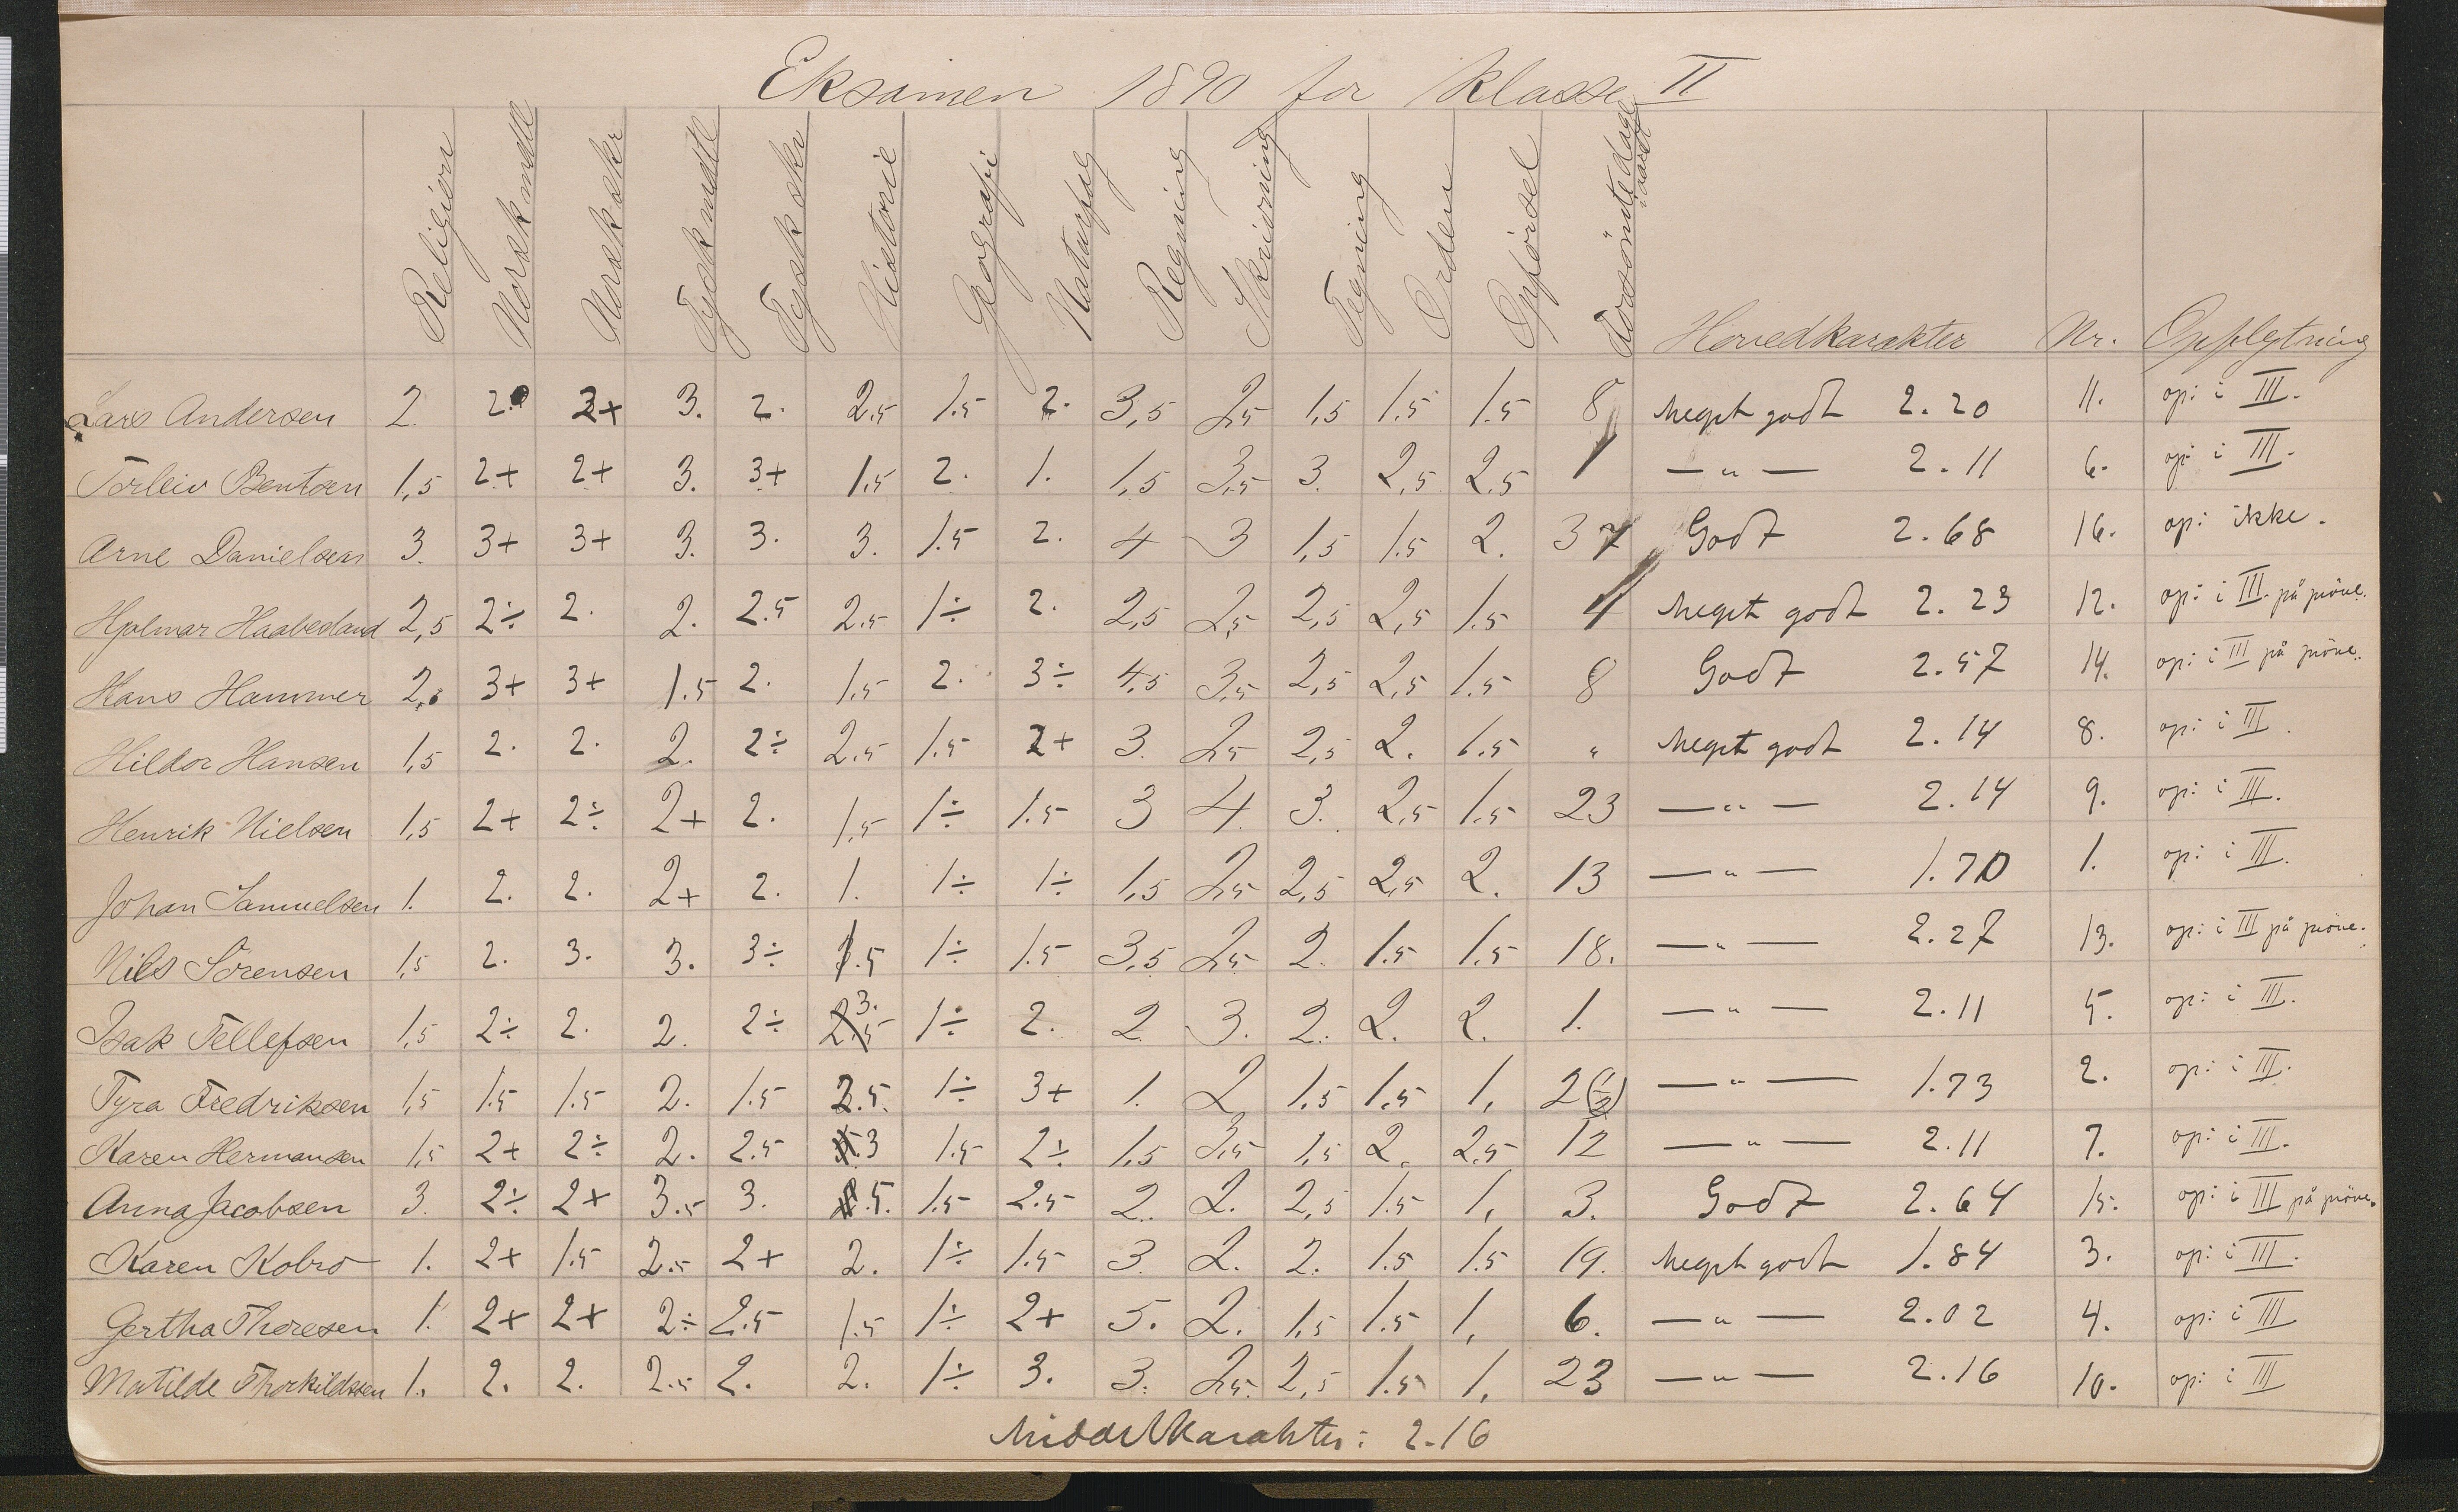 Eksamen 1890 for klasse II
Religion Norsk mdtl Norsk skr Tysk mdtl Tysk skr Historie Geografi Naturfag Regning Skrivning Tegning Orden Opförsel Forsömte dage i året Hovedkarakter Nr. Opflytning
Lars Andersen 2. 2. 3+ 3. 2. 2.5 1.5 2. 3,5 2,5 1,5 1.5 1.5 8 Meget godt 2.20 11. op: i III.
Torleiv Bentsen 1,5 2+ 2+ 3. 3+ 1.5 2. 1. 1,5 3,5 3. 2,5 2.5 1 — " — 2.11 6. op: i III.
Arne Danielsen 3. 3+ 3+ 3. 3. 3. 1.5 2. 4 3 1,5 1.5 2. 37 Godt 2.68 16. op: ikke.
Hjalmar Haabesland 2,5 2÷ 2. 2. 2.5 2.5 1÷ 2. 2,5 2,5 2,5 2,5 1.5 4 Meget godt 2.23 12. op: i III. på pröve.
Hans Hammer 2, 3+ 3+ 1.5 2. 1.5 2. 3÷ 4,5 3,5 2,5 2,5 1.5 8 Godt 2.57 14. op: i III på pröve.
Hildor Hansen 1,5 2. 2. 2. 2÷ 2.5 1.5 2+ 3. 2,5 2,5 2. 1.5 " Meget godt 2.14 8. op: i III.
Henrik Nielsen 1,5 2+ 2÷ 2+ 2. 1.5 1÷ 1.5 3 4. 3. 2,5 1.5 23 — " — 2.14 9. op: i III.
Johan Samuelsen 1. 2. 2. 2+ 2. 1. 1÷ 1÷ 1,5 2,5 2,5 2,5 2. 13 — " — 1.70 1. op: i III.
Nils Sörensen 1,5 2. 3. 3. 3÷ 1.5 1÷ 1.5 3,5 2,5 2. 1.5 1.5 18. — " — 2.27 13. op: i III på pröve.
Isak Tellefsen 1,5 2÷ 2. 2. 2÷ 2.5 3. 1÷ 2. 2. 3. 2. 2. 2. 1. — " — 2.11 5. op: i III.
Tyra Fredriksen 1,5 1.5 1.5 2. 1.5 2.5. 1÷ 3+ 1. 2 1.5 1.5 1, 2(1/2) — " — 1.73 2. op: i III.
Karen Hermansen 1,5 2+ 2÷ 2. 2.5 3 1.5 2÷ 1,5 3,5 1,5 2. 2.5 12 — " — 2.11 7. op: i III.
Anna Jacobsen 3. 2÷ 2+ 3.5 3. .5. 1.5 2.5 2. 2. 2,5 1.5 1, 3. Godt 2.64 15. op: i III på pröve.
Karen Kobro 1. 2+ 1.5 2.5 2+ 2. 1÷ 1.5 3. 2. 2. 1.5 1.5 19. Meget godt 1.84 3. op: i III.
Gertha Thoresen 1. 2+ 2+ 2÷ 2.5 1.5 1÷ 2+ 5. 2. 1,5 1.5 1, 6. — " — 2.02 4. op: i III
Matilde Thorkildssen 1. 2. 2. 2.5 2. 2. 1÷ 3. 3. 2,5. 2,5 1.5 1, 23 — " — 2.16 10. op: i III
Middelkarakter: 2.16